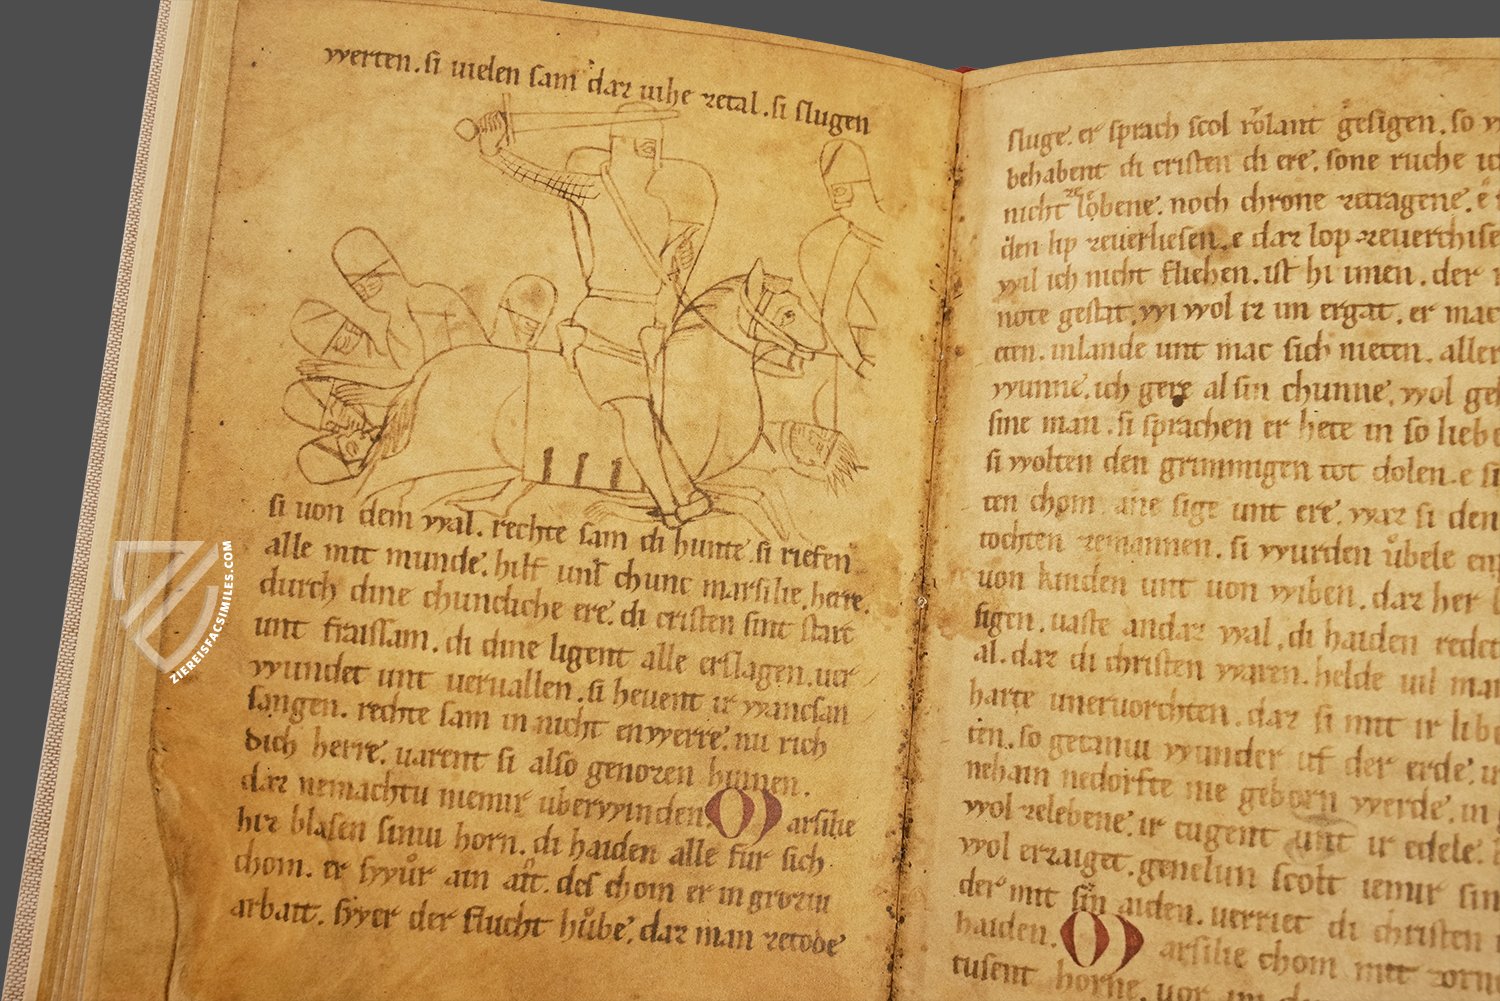 werten. si uielen sam daz uihe zetal. si slugen
si uon dem wal. rechte sam di hunte. si riefen
alle mit munde. hilf uns chunc marsilie, herre.
durch dine chuncliche ere. di cristen sint starc
unt fraissam. di dine ligent alle erslagen. uer
wundet unt ueruallen. si heuent ir wancsan
sangen. rechte sam in nicht enwerre. nu rich
dich herre. uarent si also genozen hinnen.
daz nemachtu niemir uberwinden. Marsilie
hiz blasen siniu horn. di haiden alle fur sich
chom. er swůr ain ait. des chom er in groziu
arbait. swer der flucht hůbe. daz man zetode
sluge. er sprach scol rolant gesigen. so
behabent di cristen di ere. sone ruche
nicht ze lobene. noch chrone zetragene.
den lip zeuerliesen. e daz lop zeuerchise
wil ich nicht fliehen. ist hi imen. der
note gestat. wi wol iz im ergat. er mac
inlande unt mac sich nieten. aller
wunne. ich gere al sin chunne. wol
sine man. si sprachen er hete in so liebe
si wolten den grimmigen tot dolen. e si
ten chom ane sige unt ere. waz si den
tochten zemannen. si wurden ůbele
uon kinden unt uon wiben. daz her
sigen. uaste an daz wal. di haiden
al. daz di christen waren. helde uil
harte uneruorchten. daz si mit ir libe
ten. so getaniu wunder uf der erde.
nehain nedorfte nie geborn werde. in
wol zelebene. ir tugent unt ir edele.
wol erzaiget. genelun scolt iemir
der mit sin aiden. uerriet di christen
haiden. Marsilie chom mit
tusent horne. uor im
ZIEREISFACSIMILES.COM